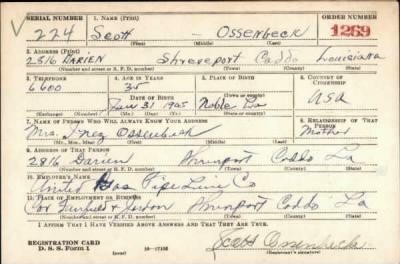 SERIAL NUMBER 1. NAME (Print) ORDER NUMBER
V 224 Scott - Ossenbeck 1269
(First) (Middle) (Last)
2. ADDRESS (Print)
2816 DARIEN Shreveport Caddo Louisiana
(Number and street or R. F. D. number) (Town) (County) (State)
3. TELEPHONE 4. AGE IN YEARS 5. PLACE OF BIRTH 6. COUNTRY OF CITIZENSHIP
6600 35
DATE OF BIRTH (Town or county)
Jan 31 1905 Noble La USA
(Mo.) (Day) (Yr.) (State or country)
7. NAME OF PERSON WHO WILL ALWAYS KNOW YOUR ADDRESS 8. RELATIONSHIP OF THAT PERSON
Mrs. Inez Ossenbeck Mother
(Mr., Mrs., Miss) (First) (Middle) (Last)
9. ADDRESS OF THAT PERSON
2816 Darien Shreveport Caddo La
(Number and street or R. F. D. number) (Town) (County) (State)
10. EMPLOYER'S NAME
United Gas Pipe Line Co
11. PLACE OF EMPLOYMENT OR BUSINESS
Cor Fairfield & Jordan Shreveport Caddo La
(Number and street or R. F. D. number) (Town) (County) (State)
I AFFIRM THAT I HAVE VERIFIED ABOVE ANSWERS AND THAT THEY ARE TRUE.
REGISTRATION CARD
D. S. S. Form 1 (over) 16-17105 Scott Ossenbeck